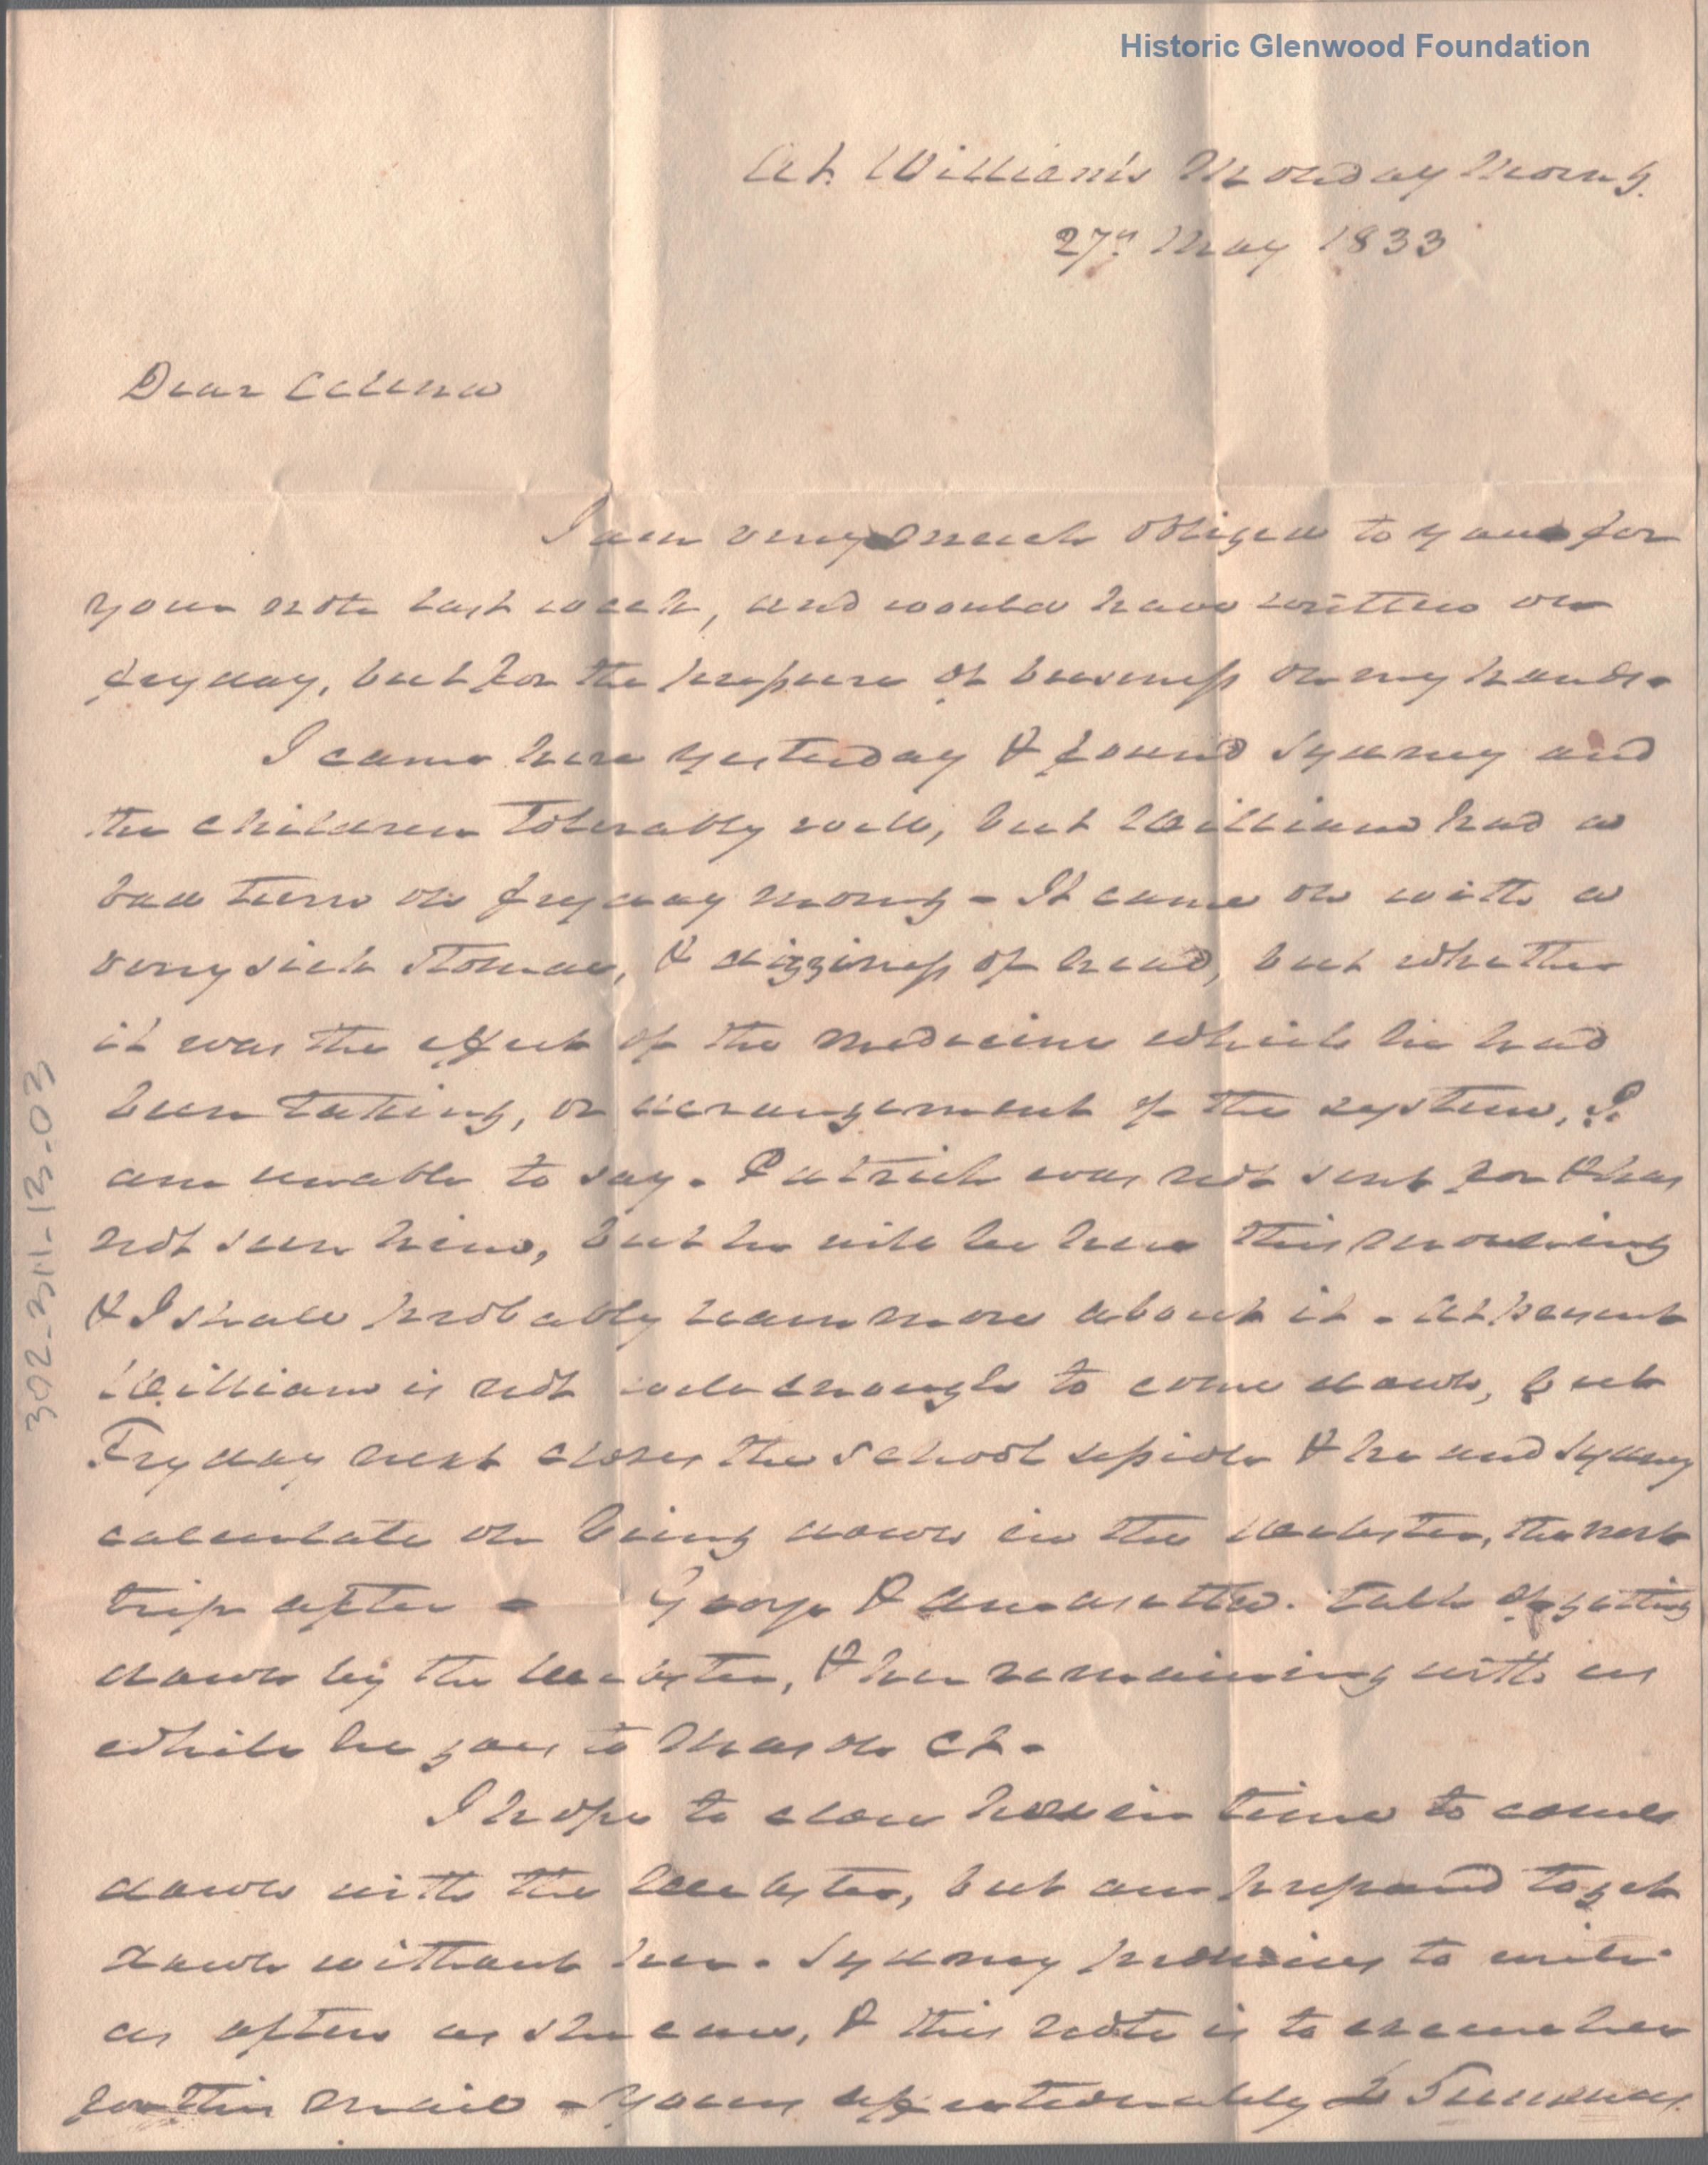 Historic Glenwood Foundation
At William's Monday Morng.
27th May 1833
Dear
I am very much obliged to you for
your note last week, and would have written on
fryday, but for the pressure of business on my hands.
I came here yesterday & found Sydney and
the children Tolerably well, but William had a
bad turn on fryday morng - It came on with a
very sick stomac, & dizziness of head, but whether
it was the effect of the medicine which he had
been taking, or derangement of the system, I
am unable to say. Patrick was not sent for & has
not seen him, but he will be here this morning
& I shall probably learn more about it. At present
William is not well enough to come down, but
Fryday next closes the school session & he and Sydney
calculate on being down in the Webster, the next
trip after - George & talk of getting
down by the Webster, & her remaining with us
while he goes to Ct.
I hope to close here in time to come
down with the Webster, but am prepared to get
down without her. Sydney promises to write
as often as she can, & this note is to excuse her
for this mail - Yours affectionately
302-311-13-03